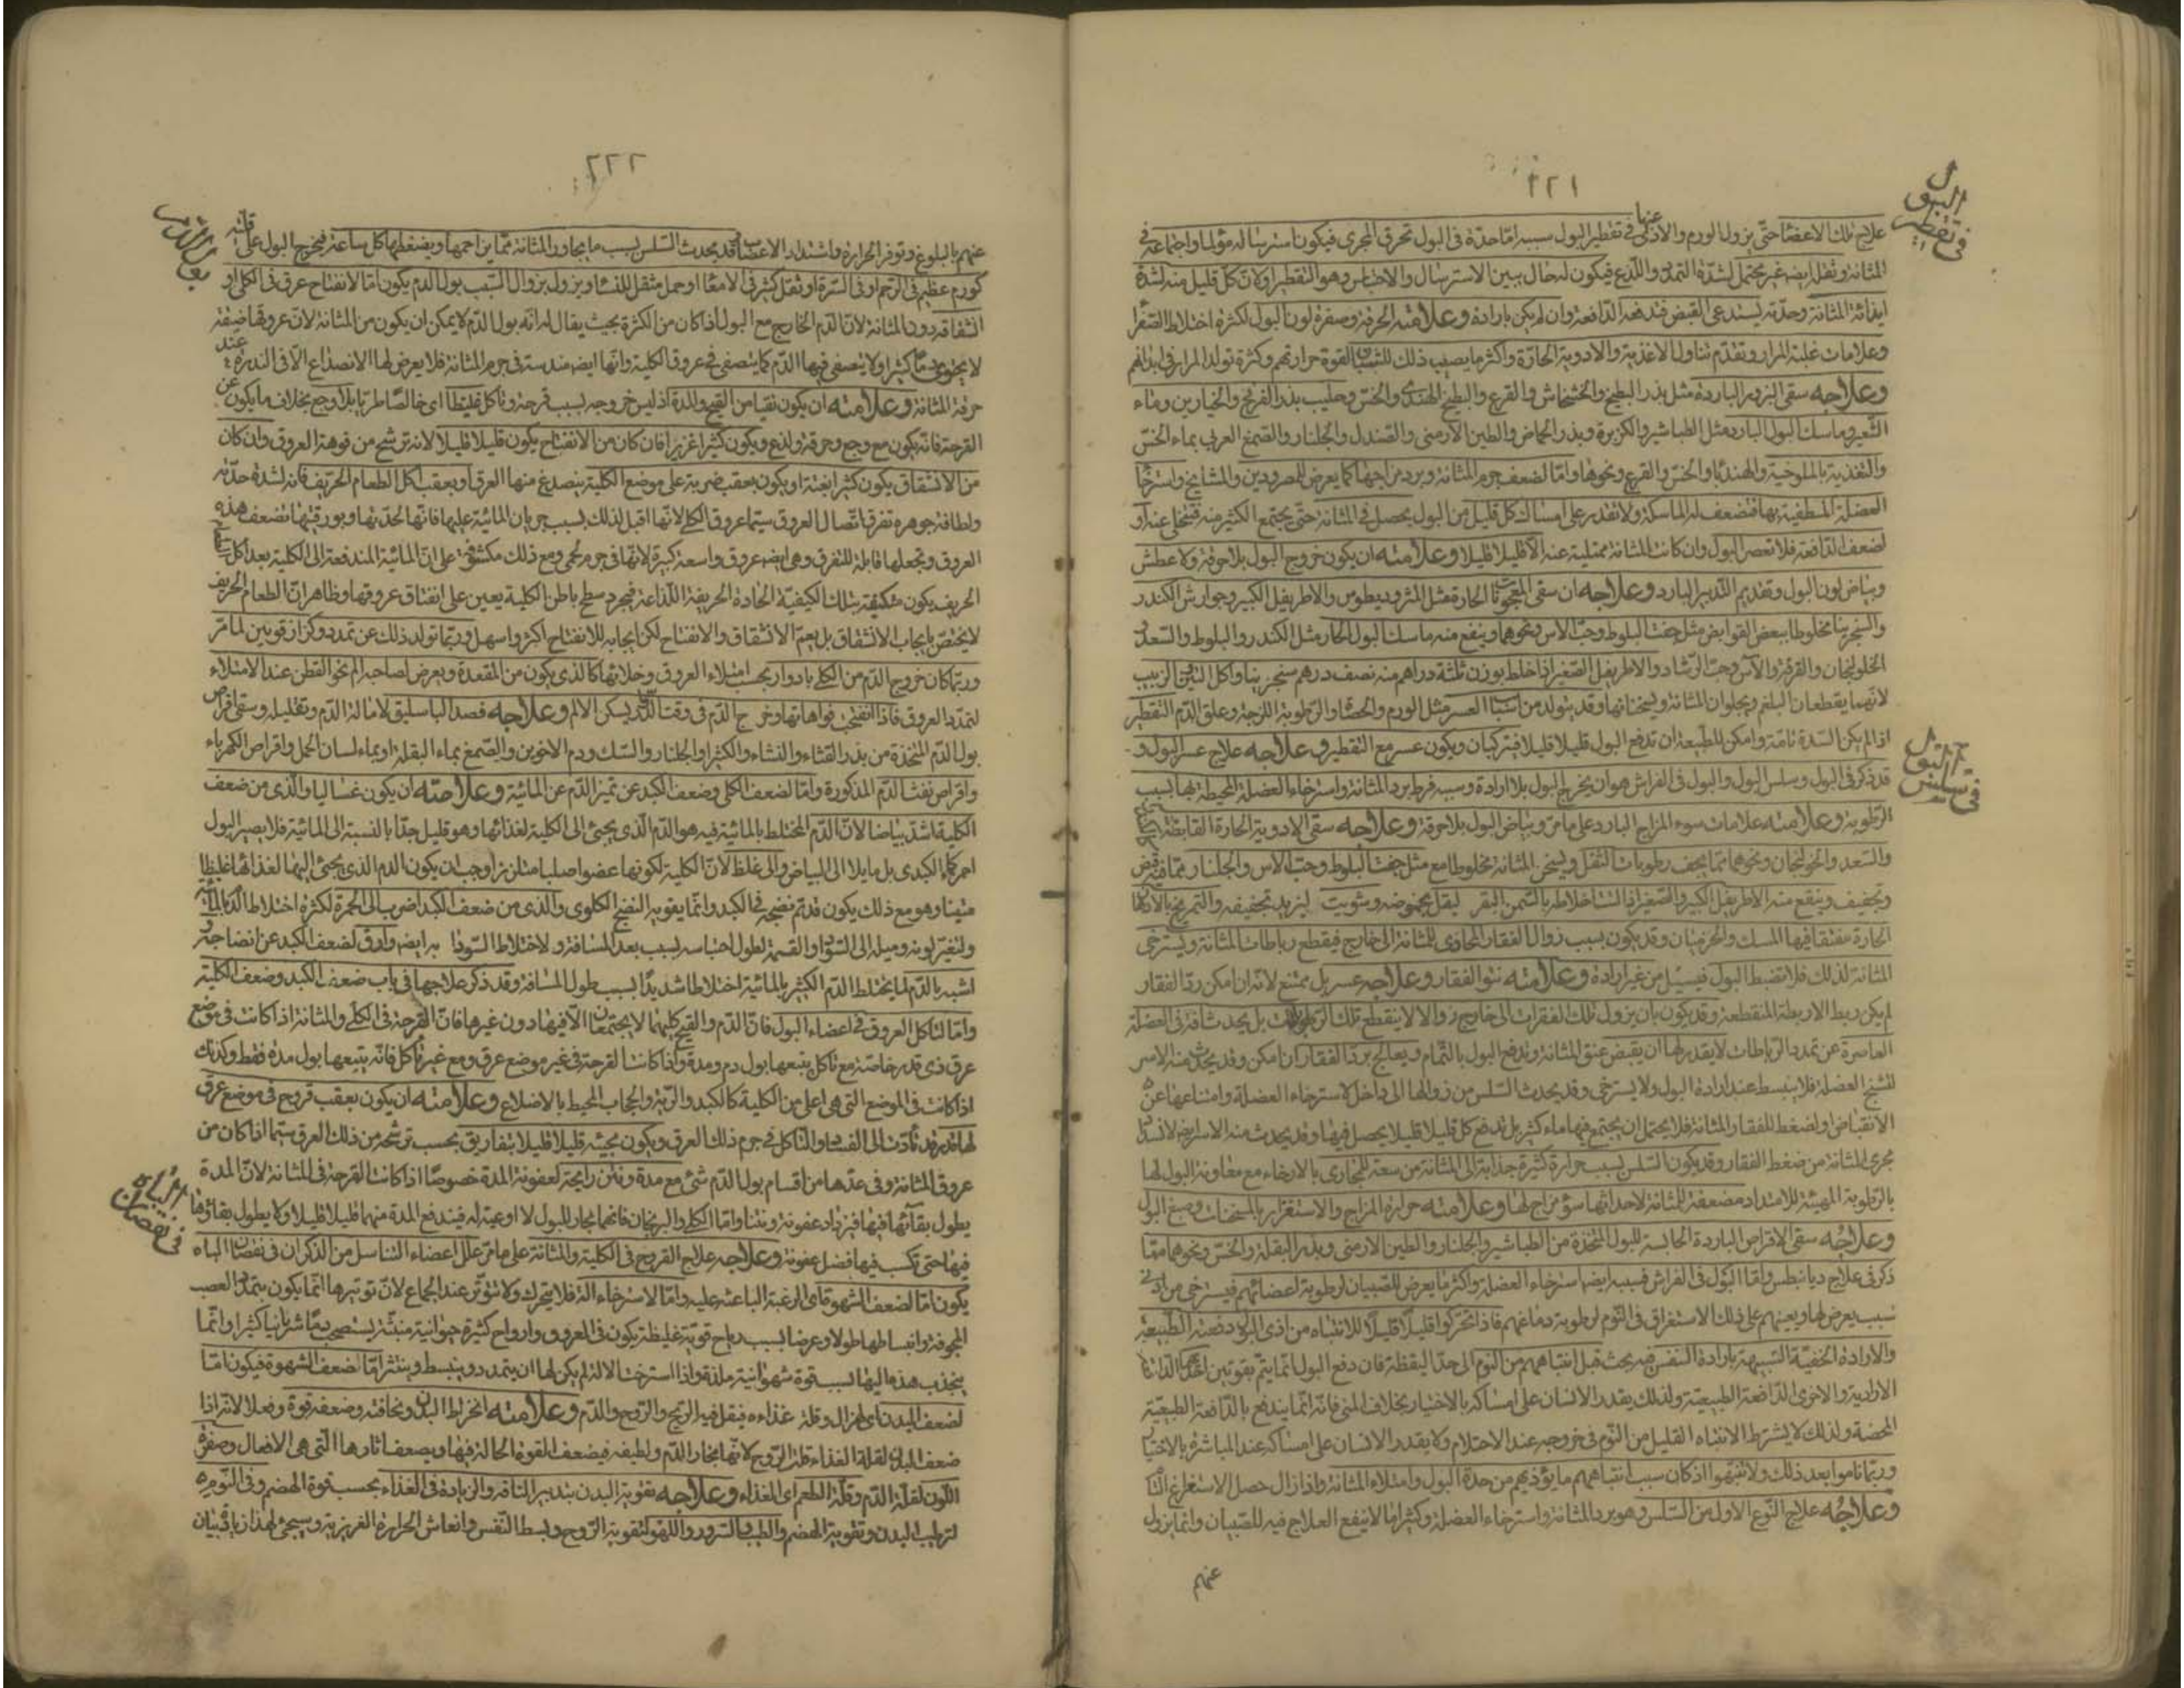 ٢٢١
في تقطير البول
علاج تلك الاعضاء حتى يزول الورم والاذى عنها في تقطير البول سببه اما حدة في البول تحرق المجرى فيكون استرساله مؤلما واجتماعه في
المثانة وثقله ايضا غير محتمل لشدة التمدد واللذع فيكون له حال بين الاسترسال والاحتباس وهو التقطير ولان كل قليل منه لشدة
ايذائه المثانة وحدته يستدعي القبض فتدفعه الدافعة وان لم يكن بارادة وعلامته الحرقة وصفرة لون البول لكثرة اختلاط الصفرا
وعلامات غلبة المرار وتقدم تناول الاغذية والادوية الحارة واكثر ما يصيب ذلك للشبان لقوة حرارتهم وكثرة تولد المرار في ابدانهم
وعلاجه سقي البزور الباردة مثل بذر البطيخ والخشخاش والقرع والبطيخ الهندي والخس وحليب بذر الفرفخ والخيارين وماء
الشعير وماسك البول البارد مثل الطباشير والكزبرة وبذر الحماض والطين الارمني والصندل والجلنار والصمغ العربي بماء الخس
والتغذية بالملوخية والهندبا والخس والقرع ونحوها واما لضعف جرم المثانة وبرد مزاجها كما يعرض للمبرودين والمشايخ واسترخاء
العضلة المطيفة بها فتضعف له الماسكة ولا تقدر على امساك كل قليل من البول يحصل في المثانة حتى يجتمع الكثير منه
لضعف الدافعة فلا تعصر البول وان كانت المثانة ممتلية عنه الا قليلا قليلا وعلامته ان يكون خروج البول بلا حرقة ولا عطش
وبياض لون البول وتقديم التدبير البارد وعلاجه ان سقي المعجونات الحارة مثل المثروديطوس والاطريفل الكبير وجوارش الكندر
والسنجرينا مخلوطا ببعض القوابض مثل جفت البلوط وحب الاس ونحوهما وينفع منه ماسك البول الحار مثل الكندر والبلوط والسعد
الخلولنجان والقرفة والآس وحب الرشاد والاطريفل الصغير اذا خلط بوزن ثلثة دراهم منه نصف درهم سنجرينا واكل التين الزبيب
لانهما يقطعان البلغم ويجلوان المثانة ويسخنانها وقد يتولد من اسباب العسر مثل الورم والحصاة والرطوبة اللزجة وعلق الدم التقطير
اذا لم يكن السدة تامة وامكن للطبيعة ان تدفع البول قليلا قليلا فيتركبان ويكون عسر مع التقطير وعلاجه علاج عسر البول و
في سلس البول
قد ذكر في البول وسلس البول والبول في الفراش هو ان يخرج البول بلا ارادة وسببه فرط برد المثانة واسترخاء العضلة المحيطة بها بسبب
الرطوبة وعلامته علامات سوء المزاج البارد على ما مر وبياض البول بلا حرقة وعلاجه سقي الادوية الحارة القابضة
والسعد والخولنجان ونحوهما مما يجفف رطوبات الثقل ويسخن المثانة مخلوطا مع مثل جفت البلوط وحب الاس والجلنار مما فيه قبض
وتجفيف وينفع منه الاطريفل الكبير والصغير بالسمن البقر ليقل حموضه وشويت ليزيد تجفيفه والتمريخ بالادهان
الحارة مفتقا فيها المسك والخرميان وقد يكون بسبب زوال الفقار المحاذي للمثانة الى خارج فيقطع رباطات المثانة ويسترخي
المثانة لذلك فلا تضبط البول فيسيل من غير ارادة وعلامته نتو الفقار وعلاجه عسر بل ممتنع لانه ان امكن رد الفقار
لم يكن ربط الاربطة المنقطعة وقد يكون بان يزول تلك الفقرات الى خارج زوالا لا ينقطع تلك الرباطات بل يحدث آفة في العضلة
العاصرة عن تمدد الرباطات لا يقدر لها ان يقبض عنق المثانة وتدفع البول بالتمام ويعالج برد الفقار ان امكن وقد يحدث منه الاسر
لتشنج العضلة فلا ينبسط عند ارادة البول ولا يسترخي وقد يحدث السلس من زوالها الى داخل لاسترخاء العضلة وامتناعها عن
الانقباض ولضغط الفقار المثانة فلا يحتمل ان يجتمع فيها ماء كثير بل تدفع كل قليلا قليلا يحصل فيها وقد يحدث منه الاسر ايضا لانسداد
مجرى المثانة من ضغط الفقار وقد يكون السلس بسبب حرارة كثيرة جذابة الى المثانة من سعة للمجاري بالارخاء مع معاونة البول لها
بالرطوبة المهيئة للامتداد مضعفة للمثانة لاحداثها سوء مزاج لها وعلامته حرارة المزاج والاستضرار بالمسخنات وصبغ البول
وعلاجه سقي الاقراص الباردة الحابسة للبول المتخذة من الطباشير والجلنار والطين الارمني وبذر البقلة والخس ونحوهما مما
ذكر في علاج ديانيطس واما البول في الفراش فسببه ايضا استرخاء العضلة واكثر ما يعرض للصبيان لرطوبة اعضائهم فيسترخي من ادنى
سبب يعرض لها ويعينهم على ذلك الاستغراق في النوم لرطوبة دماغهم فاذا تحركوا قليلا قليلا للانتباه من اذى البول دفعته الطبيعة
والارادة الخفية الشبيهة بارادة النفس فيه بحث قبل انتباههم من النوم الى حد اليقظة فان دفع البول انما يتم بقوتين
الارادية والاخرى الدافعة الطبيعية ولذلك يقدر الانسان على امساكه بالاختيار بخلاف المني فانه انما يندفع بالدافعة الطبيعية
المحضة ولذلك لا يشترط الانتباه القليل من النوم في خروجه عند الاحتلام ولا يقدر الانسان على امساكه عند المباشرة بالاختيار
وربما ناموا بعد ذلك ولا تنبهوا اذ كان سبب انتباههم ما يؤذيهم من حدة البول وامتلاء المثانة واذا زال حصل الاستغراق
وعلاجه علاج النوع الاول من السلس وهو برد المثانة واسترخاء العضلة وكثيرا ما لا ينفع العلاج فيه للصبيان وانما يزول
عنهم
٢٢٢
عنهم بالبلوغ وتوفر الحرارة واشتداد الاعصاب وقد يحدث السلس بسبب ما يجاور المثانة مما يزاحمها ويضغطها كل ساعة فيخرج البول على قلته
كورم عظيم في الرحم او في السرة او ثقل كثير في الامعاء او حمل مثقل للنساء ويزول بزوال السبب بول الدم يكون اما لانفتاح عرق في الكلى او
انشقاقه دون المثانة لان الدم الخارج مع البول اذا كان من الكثرة بحيث يقال له انه بول الدم لا يمكن ان يكون من المثانة لان عروقها ضيقة
لا يحتوي دما كثيرا ولا يتصفى فيها الدم كما يتصفى في عروق الكلية وانها ايضا مندسة في جرم المثانة فلا يعرض لها الانصداع الا في الندرة عند
حرقة المثانة وعلامته ان يكون نقيا من القيح والمدة اذ ليس خروجه بسبب قرحة وتاكل عبيطا اي خالصا طريا بلا وجع بخلاف ما يكون عن
القرحة فانه يكون مع وجع وحرقة ولذع ويكون كثيرا غزيرا فان كان من الانفتاح يكون قليلا قليلا لانه ترشح من فوهة العروق وان كان
من الانشقاق يكون كثيرا بغتة او يكون بعقب ضربة على موضع الكلية ينصدع منها العرق او بعقب اكل الطعام الحريف فانه لشدة حدته
ولطافة جوهره تفرق اتصال العروق سيما عروق الكلى لانها اقبل لذلك بسبب جريان المائية عليها فانها لحدتها وبورقيتها تضعف هذه
العروق وتجعلها قابلة للتفرق وهي ايضا عروق واسعة كبيرة لانها في جرم لحمي ومع ذلك مكشوفة على ان المائية المندفعة الى الكلية بعد اكل الطعام
الحريف يكون متكيفة بتلك الكيفية الحادة الحريفة اللذاعة فيجرد سطح باطن الكلية يعين على انفتاق عروقها وظاهر ان الطعام الحريف
لا يختص بايجاب الانشقاق بل يعم الانشقاق والانفتاح لكن ايجابه للانفتاح اكثر واسهل وربما تولد ذلك عن تمدد وكزاز قويين لما مر
وربما كان خروج الدم من الكلى بادوار بحسب امتلاء العروق وخلائها كالذي يكون من المقعدة ويعرض لصاحبه الم نحو القطن عند الامتلاء
لتمدد العروق فاذا انفتحت فواهاتها وخرج الدم في وقت الدور يسكن الالم وعلاجه فصد الباسليق لامالة الدم وتقليله وسقي اقراص
بول الدم المتخذة من بذر القثاء والنشاء والكثيرا والجلنار والسك ودم الاخوين والصمغ بماء البقلة او بماء لسان الحمل واقراص الكهرباء
واقراص نفث الدم المذكورة واما لضعف الكلى وضعف الكبد عن تميز الدم عن المائية وعلامته ان يكون غساليا والذي من ضعف
الكلية اشد بياضا لان الدم المختلط بالمائية فيه هو الدم الذي يجيئ الى الكلية لغذائها وهو قليل جدا بالنسبة الى المائية فلا يصير البول
احمر كما في الكبدي بل مايلا الى البياض والى غلظ لان الكلية لكونها عضوا صلبا متلززا وجب ان يكون الدم الذي يجيئ اليها لغذائها غليظا
متينا وهو مع ذلك يكون قد تم نضجه في الكبد وانما يفوته النضج الكلوي والذي من ضعف الكبد اضرب الى الحمرة لكثرة اختلاط الدم بالمائية
ولتغير لونه وميله الى السواد والقتمة لطول احتباسه بسبب بعد المسافة ولاختلاط السودا به ايضا وارق لضعف الكبد عن انضاجه و
اشبه بالدم لما يختلط الدم الكثير بالمائية اختلاطا شديدا بسبب طول المسافة وقد ذكر علاجها في باب ضعف الكبد وضعف الكلية
واما لتاكل العروق في اعضاء البول فان الدم والقيح كليهما لا يجتمعان الا فيها دون غيرها فان القرحة في الكلى والمثانة اذا كانت في موضع
عرق ذي قدر خاصة مع تاكل يتبعها بول دم ومدة واذا كانت القرحة في غير موضع عرق ومع غير تاكل فانه يتبعها بول مدة فقط وكذلك
اذا كانت في الموضع التي هي اعلى من الكلية كالكبد والرية والحجاب المحيط بالاضلاع وعلامته ان يكون بعقب قروح في موضع عرق
لها قدر قد تأدت الى الفساد والتاكل في جرم ذلك العرق ويكون مجيئه قليلا قليلا بتفاريق بحسب ترشحه من ذلك العرق سيما اذا كان من
عروق المثانة وفي عدها من اقسام بول الدم شئ مع مدة ونتن رايحة لعفونة المدة خصوصا اذا كانت القرحة في المثانة لان المدة
يطول بقائها فيها فيزداد عفونة ونتنا واما الكلى والبربخان فانهما مجار للبول لا اوعية له فيندفع المدة منهما قليلا قليلا ولا يطول بقاؤها
في نقصان الباه
فيها حتى تكسب فيها فضل عفونة وعلاجه علاج القروح في الكلية والمثانة على ما مر علل اعضاء التناسل من الذكران في نقصان الباه
يكون اما لضعف الشهوة اي الرغبة الباعثة عليه واما لاسترخاء الالة فلا يتحرك ولا تتوتر عند الجماع لان توترها انما يكون بتمدد العصب
المجوفة وانبساطها طولا وعرضا بسبب رياح قوية غليظة يكون في العروق وارواح كثيرة حيوانية منبثة يستصحب دما شريانيا كثيرا وانما
ينجذب هذه اليها بسبب قوة شهوانية ملذة واذا استرخت الالة لم يكن لها ان يتمدد وينبسط وينتشر اما لضعف الشهوة فيكون اما
لضعف البدن اي هزاله وقلة غذاءه فيقل فيه الريح والروح والدم وعلامته انخراط البدن ونحافته وضعفه قوة وفعلا لانه اذا
ضعف البدن لقلة الغذاء قلت الروح لانها بخار الدم ولطيفه فيضعف القوة الحالة فيها ويضعف اثارها التي هي الافعال وصفرة
اللون لقلة الدم وقلة الطعم اي الغذاء وعلاجه تقوية البدن بتدبير الناقه والزيادة في الغذاء بحسب قوة الهضم وفي النوم
لترطيب البدن وتقوية الهضم والطيب والسرور واللهو لتقوية الروح وبسط النفس وانعاش الحرارة الغريزية وسيجئ لهذا زيادة بيان